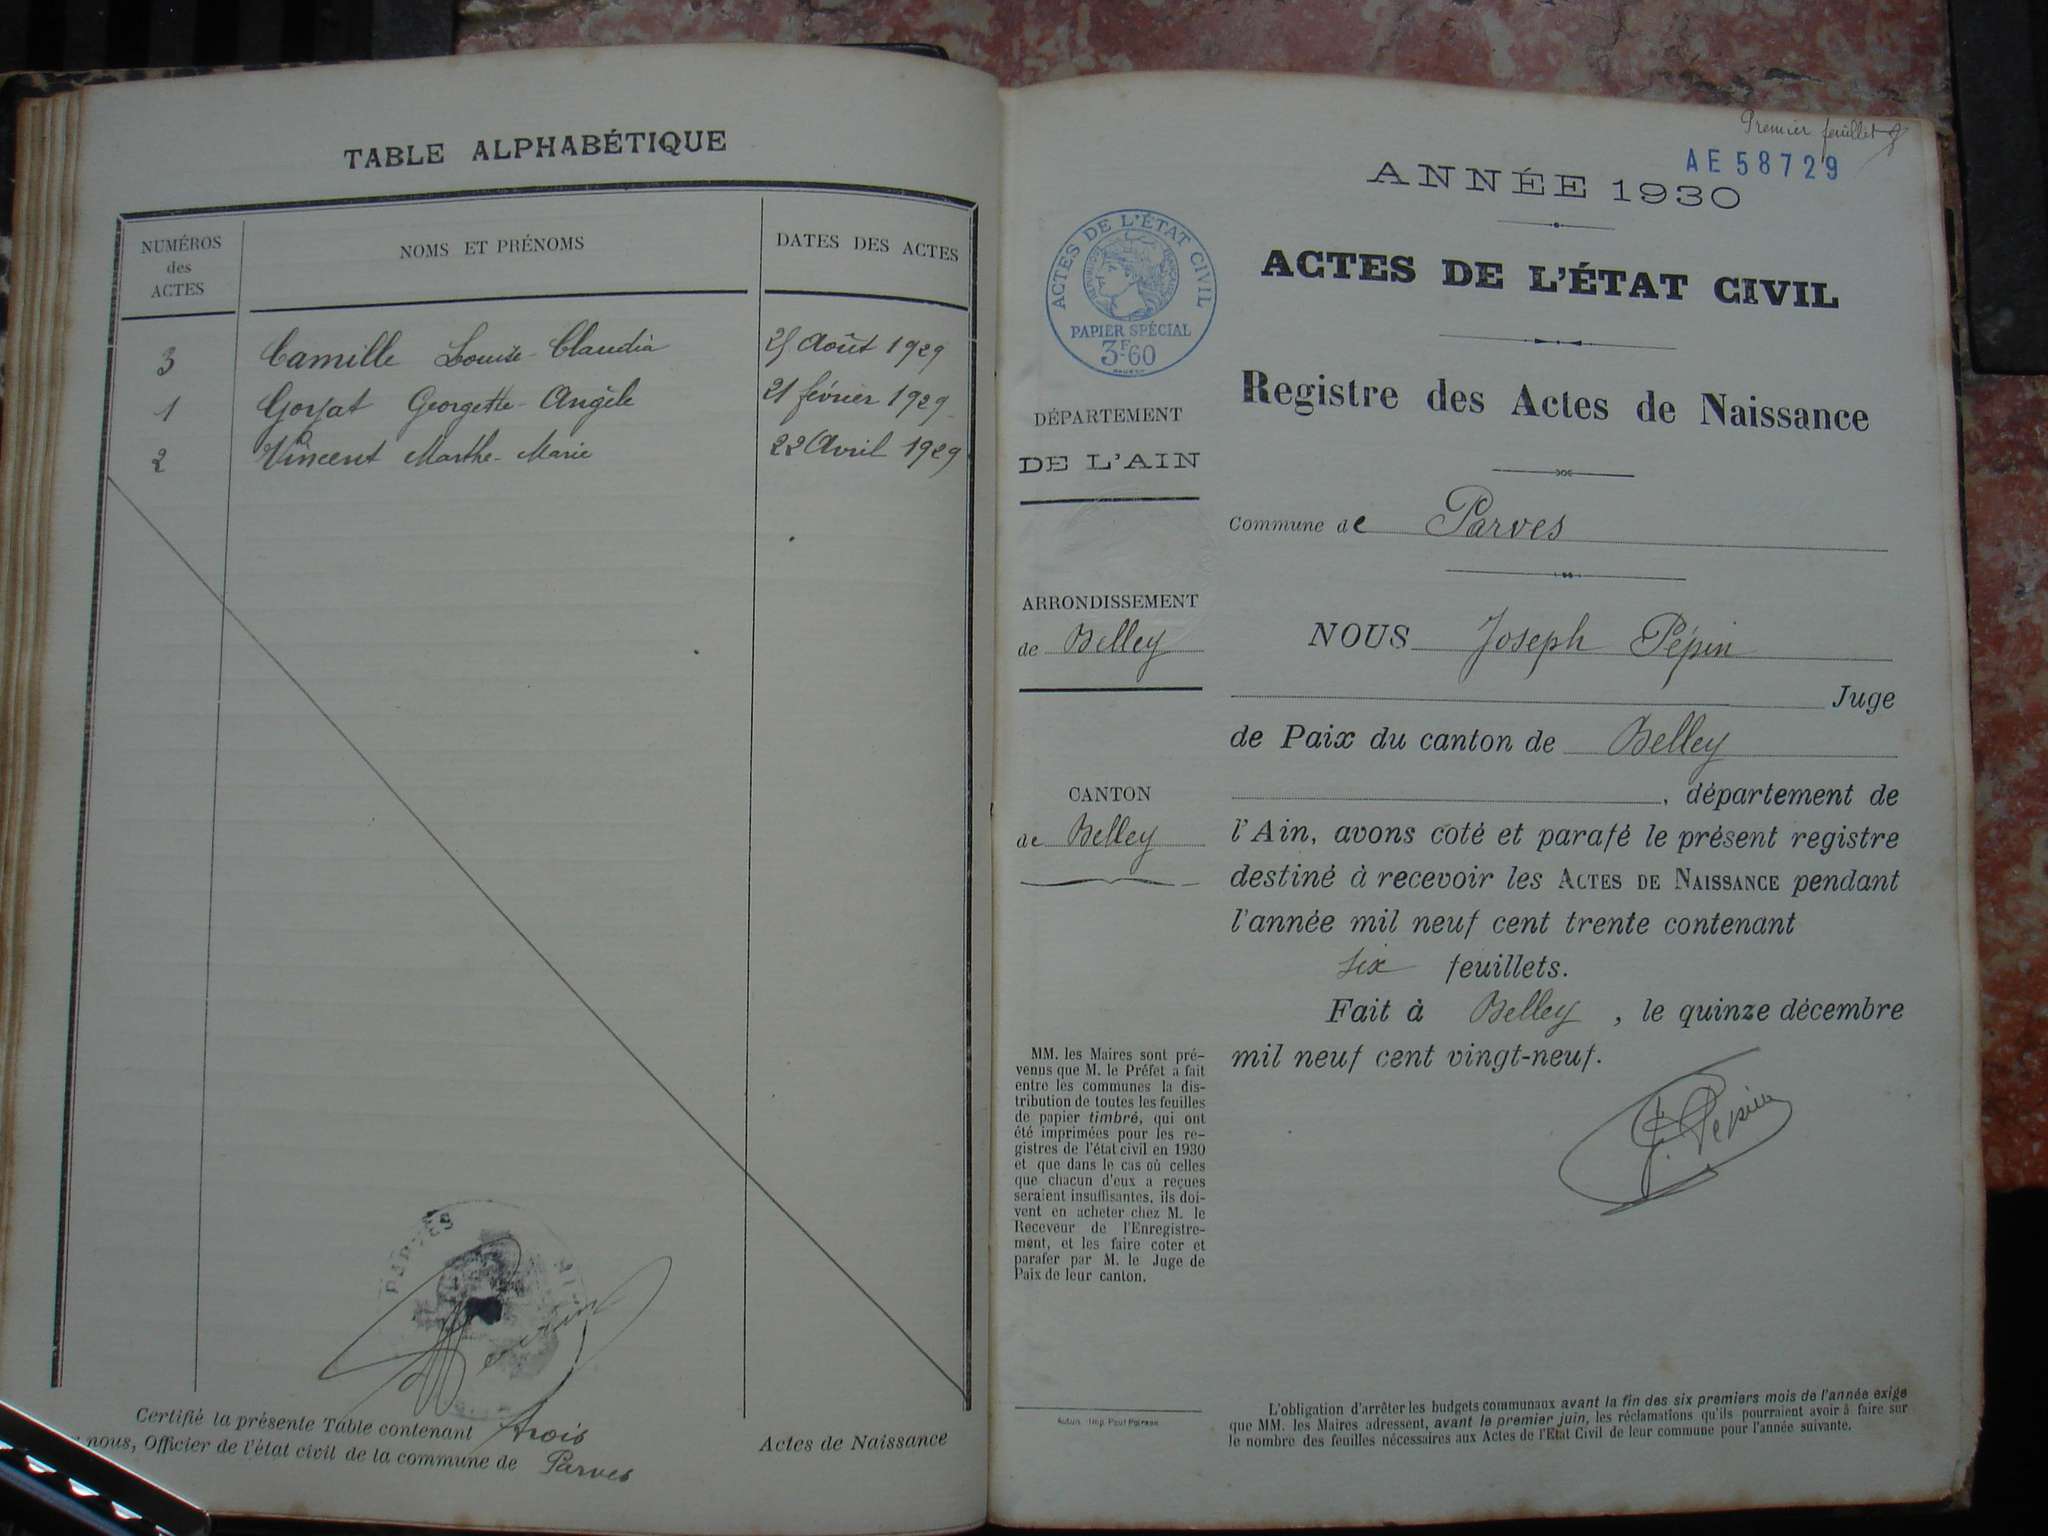 TABLE ALPHABÉTIQUE
NUMÉROS
des
ACTES
NOMS ET PRÉNOMS
DATES DES ACTES
3 Camille Louise-Claudia 25 Août 1929
1 Goyat Georgette-Angèle 21 février 1929
2 Vincent Marthe-Marie 22 Avril 1929
PARVES
Certifié la présente Table contenant trois
nous, Officier de l'état civil de la commune de Parves
Actes de Naissance
Premier feuillet
AE 58729
ANNÉE 1930
ACTES DE L'ÉTAT CIVIL
PAPIER SPÉCIAL
3F.60
ACTES DE L'ÉTAT CIVIL
Registre des Actes de Naissance
DÉPARTEMENT
DE L'AIN
Commune de Parves
ARRONDISSEMENT
de Belley
CANTON
de Belley
NOUS Joseph Pépin
Juge
de Paix du canton de Belley
, département de
l'Ain, avons coté et parafé le présent registre
destiné à recevoir les ACTES DE NAISSANCE pendant
l'année mil neuf cent trente contenant
six feuillets.
Fait à Belley, le quinze décembre
mil neuf cent vingt-neuf.
J. Pépin
MM. les Maires sont pré-
venus que M. le Préfet a fait
entre les communes la dis-
tribution de toutes les feuilles
de papier timbré, qui ont
été imprimées pour les re-
gistres de l'état civil en 1930
et que dans le cas où celles
que chacun d'eux a reçues
seraient insuffisantes, ils doi-
vent en acheter chez M. le
Receveur de l'Enregistre-
ment, et les faire coter et
parafer par M. le Juge de
Paix de leur canton.
Autun. Imp. Paul Poirson
L'obligation d'arrêter les budgets communaux avant la fin des six premiers mois de l'année exige
que MM. les Maires adressent, avant le premier juin, les réclamations qu'ils pourraient avoir à faire sur
le nombre des feuilles nécessaires aux Actes de l'Etat Civil de leur commune pour l'année suivante.